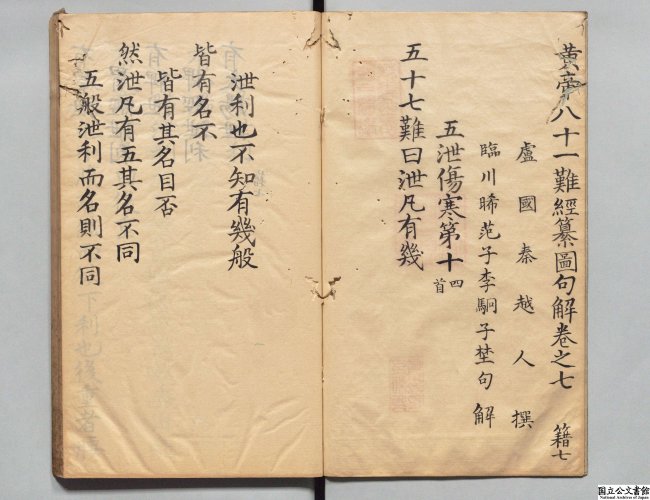 黃帝八十一難經纂圖句解卷之七 籍七
盧國秦越人撰
臨川晞范子李駉子埜句解
五泄傷寒第十四首
五十七難曰泄凡有幾
泄利也不知有幾般
皆有名不
皆有其名目否
然泄凡有五其名不同
五般泄利而名則不同
国立公文書館
National Archives of Japan